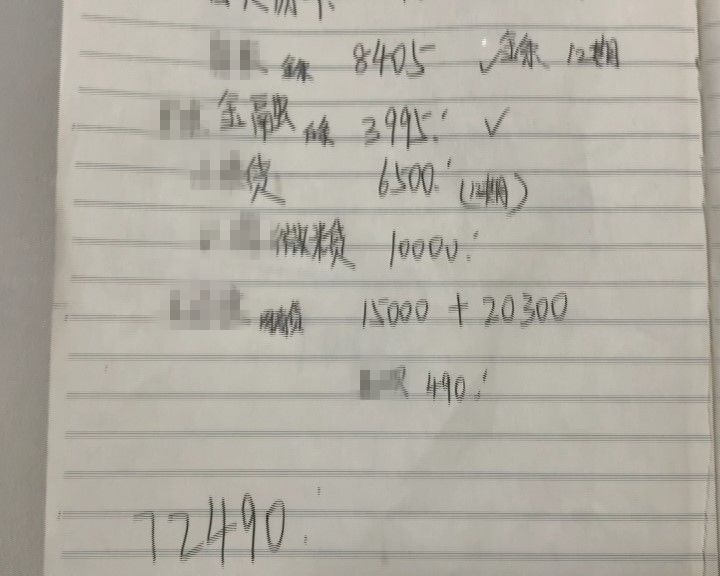 余 8405 ✓ 余 12期
金融 余 3995. ✓
贷 6500. (12期)
微粒贷 10000.
贷 15000 + 20300
490.
72490.